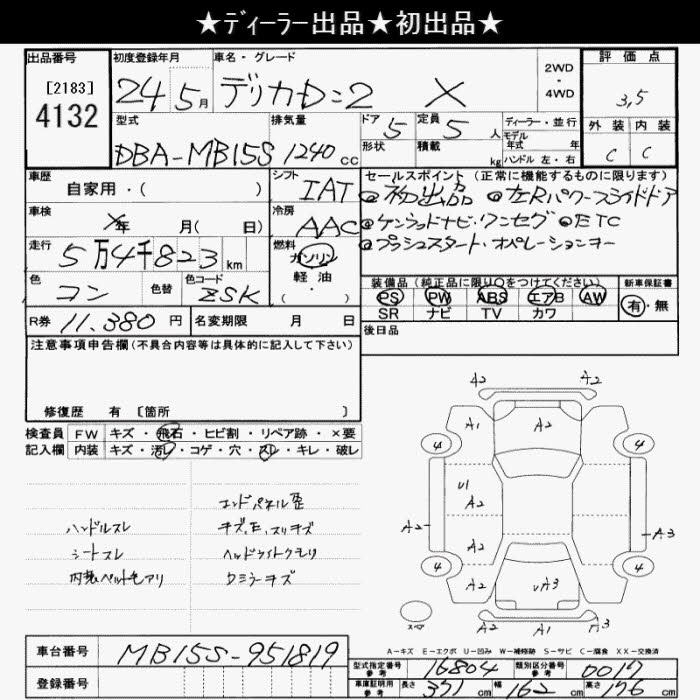 ★ディーラー出品★初出品★
出品番号 初度登録年月 車名・グレード 2WD・4WD 評価点
[2183] 4132 24 5月 デリカD:2 X 3,5
型式 排気量 ドア 5 定員 5人 ディーラー・並行 外装 内装
DBA-MB15S 1240cc 形状 積載 kg モデル年式 年 ハンドル 左・右 C C
車歴 シフト IAT セールスポイント(正常に機能するものに限ります)
自家用・( ) 初出品 左Rパワースライドドア
車検 X年 月( 日) 冷房 AAC ケンウッドナビ・ワンセグ ETC
走行 5万4千823km 燃料 ガソリン プッシュスタート・オペレーションキー
軽油・( )
色 コン 色替 色コード ZSK 装備品(純正品に限り○をつけてください) 新車保証書
PS PW ABS エアB AW 有・無
R券 11.380円 名変期限 月 日 SR ナビ TV カワ
注意事項申告欄(不具合内容等は具体的に記入して下さい) 後日品
修復歴 有 [箇所 ]
検査員 FW キズ・飛石・ヒビ割・リペア跡・×要
記入欄 内装 キズ・汚レ・コゲ・穴・スレ・キレ・破レ
エンドパネル歪
ハンドルスレ キズ,E,スリキズ
シートスレ ヘッドライトクモリ
内装ペット毛アリ Wミラーキズ
A2 A2
A1 A2
4 4
U1 A2
A2 A3
A2
4 4
A2 UA3
A2 A1 A3
A-キズ E-エクボ U-凹み W-補修跡 S-サビ C-腐食 XX-交換済
車台番号 MB15S-951819
型式指定番号 参考 16804 類別区分番号 参考 0017
登録番号 車庫証明用 参考 長さ 371cm 幅 162cm 高さ 176cm